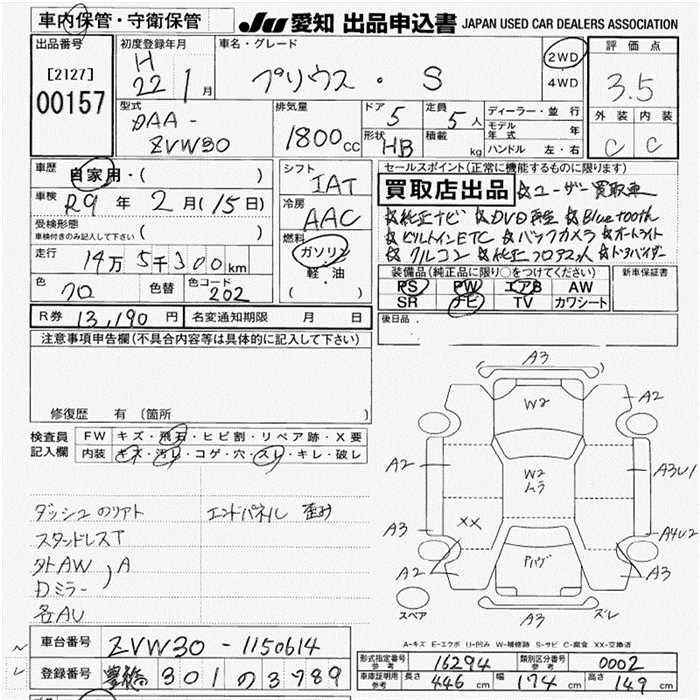 車内保管・守衛保管
JU 愛知 出品申込書 JAPAN USED CAR DEALERS ASSOCIATION
出品番号
[2127]
00157
初度登録年月
H
22 1月
車名・グレード
プリウス・S
2WD
4WD
評価点
3.5
外装 内装
C C
型式
DAA-
ZVW30
排気量
1800cc
ドア 5
形状 HB
定員 5人
積載 kg
ディーラー・並行
モデル年式 年
ハンドル 左・右
車歴 自家用・( )
車検 R9年 2月(15日)
受検形態
車検付きのみ記入して下さい ( )
走行 14万5千300km
色 クロ 色替 色コード 202
R券 13,190円 名変通知期限 月 日
シフト
IAT
冷房
AAC
燃料
ガソリン
軽・油
( )
セールスポイント(正常に機能するものに限ります)
買取店出品 ☆ユーザー買取車
☆純正ナビ ☆DVD再生 ☆Bluetooth
☆ビルトインETC ☆バックカメラ ☆オートライト
☆クルコン ☆社正フロアマット ☆ドアバイザー
装備品(純正品に限り○をつけてください) 新車保証書
PS PW エアB AW
SR ナビ TV カワシート
後日品
注意事項申告欄(不具合内容等は具体的に記入して下さい)
修復歴 有(箇所 )
検査員記入欄
FW キズ・飛石・ヒビ割・リペア跡・X要
内装 キズ・汚レ・コゲ・穴・スレ・キレ・破レ
ダッシュのリアト エンドパネル 歪み
スタンドレスT
外AW
Dミラー
)A
各AU
A3
W2
A2
A2
W2
ムラ
A3U1
A3
XX
A4U2
A2
Pハゲ
A3
スペア
A3
ズレ
A-キズ E-エクボ U-凹み W-補修跡 S-サビ C-腐食 XX-交換済
車台番号 ZVW30-1150614
登録番号 豊橋 301 の 3789
形式指定番号参考 16294 類別区分番号参考 0002
車庫証明用参考 長さ 446cm 幅 174cm 高さ 149cm